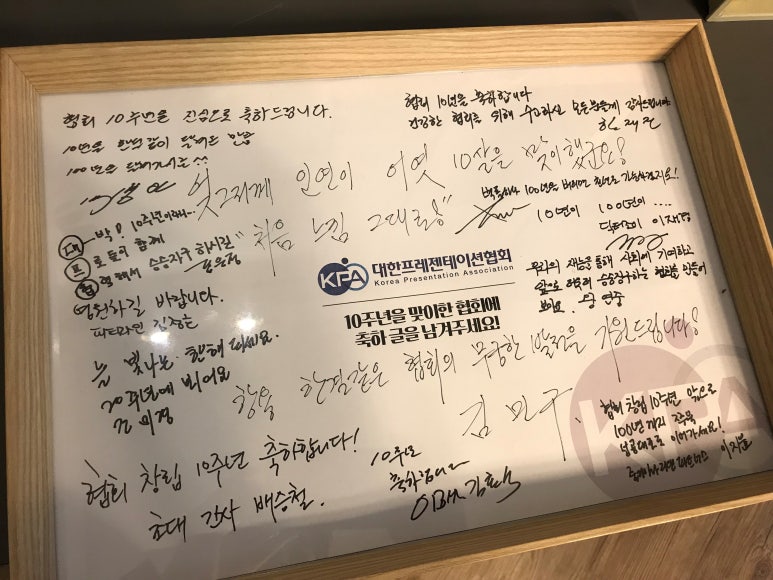 협회 10주년을 진심으로 축하드립니다.
10년을 한결같이 달려온 만큼
협회 10년을 축하합니다
건강한 협회를 위해 수고하신 모든분들께 감사드립니다
엊그제께 인연이 어엿 10살을 맞이했군요!
"처음 느낌 그대로!"
10년이 100년이 ....
디렉터 이재경
대-박! 10주년이라니..
프로들이 함께
협력해서 승승장구 하시길
영원하길 바랍니다.
KPA 대한프레젠테이션협회
Korea Presentation Association
10주년을 맞이한 협회에
축하 글을 남겨주세요!
우리의 재능을 통해 사회에 기여하고
앞으로 더욱더 승승장구하는 협회를 만들어
보아요.
늘 빛나는 한해 되세요.
20주년에 봬어요
전 미경
항상 한결같은 협회의 무궁한 발전을 기원드립니다!
김민구
협회 창립 10주년 축하합니다!
초대 간사 배승철.
10주년
축하합니다
협회 창립 10주년 앞으로
100년까지 주욱
이어가세요!
이지윤
KPA